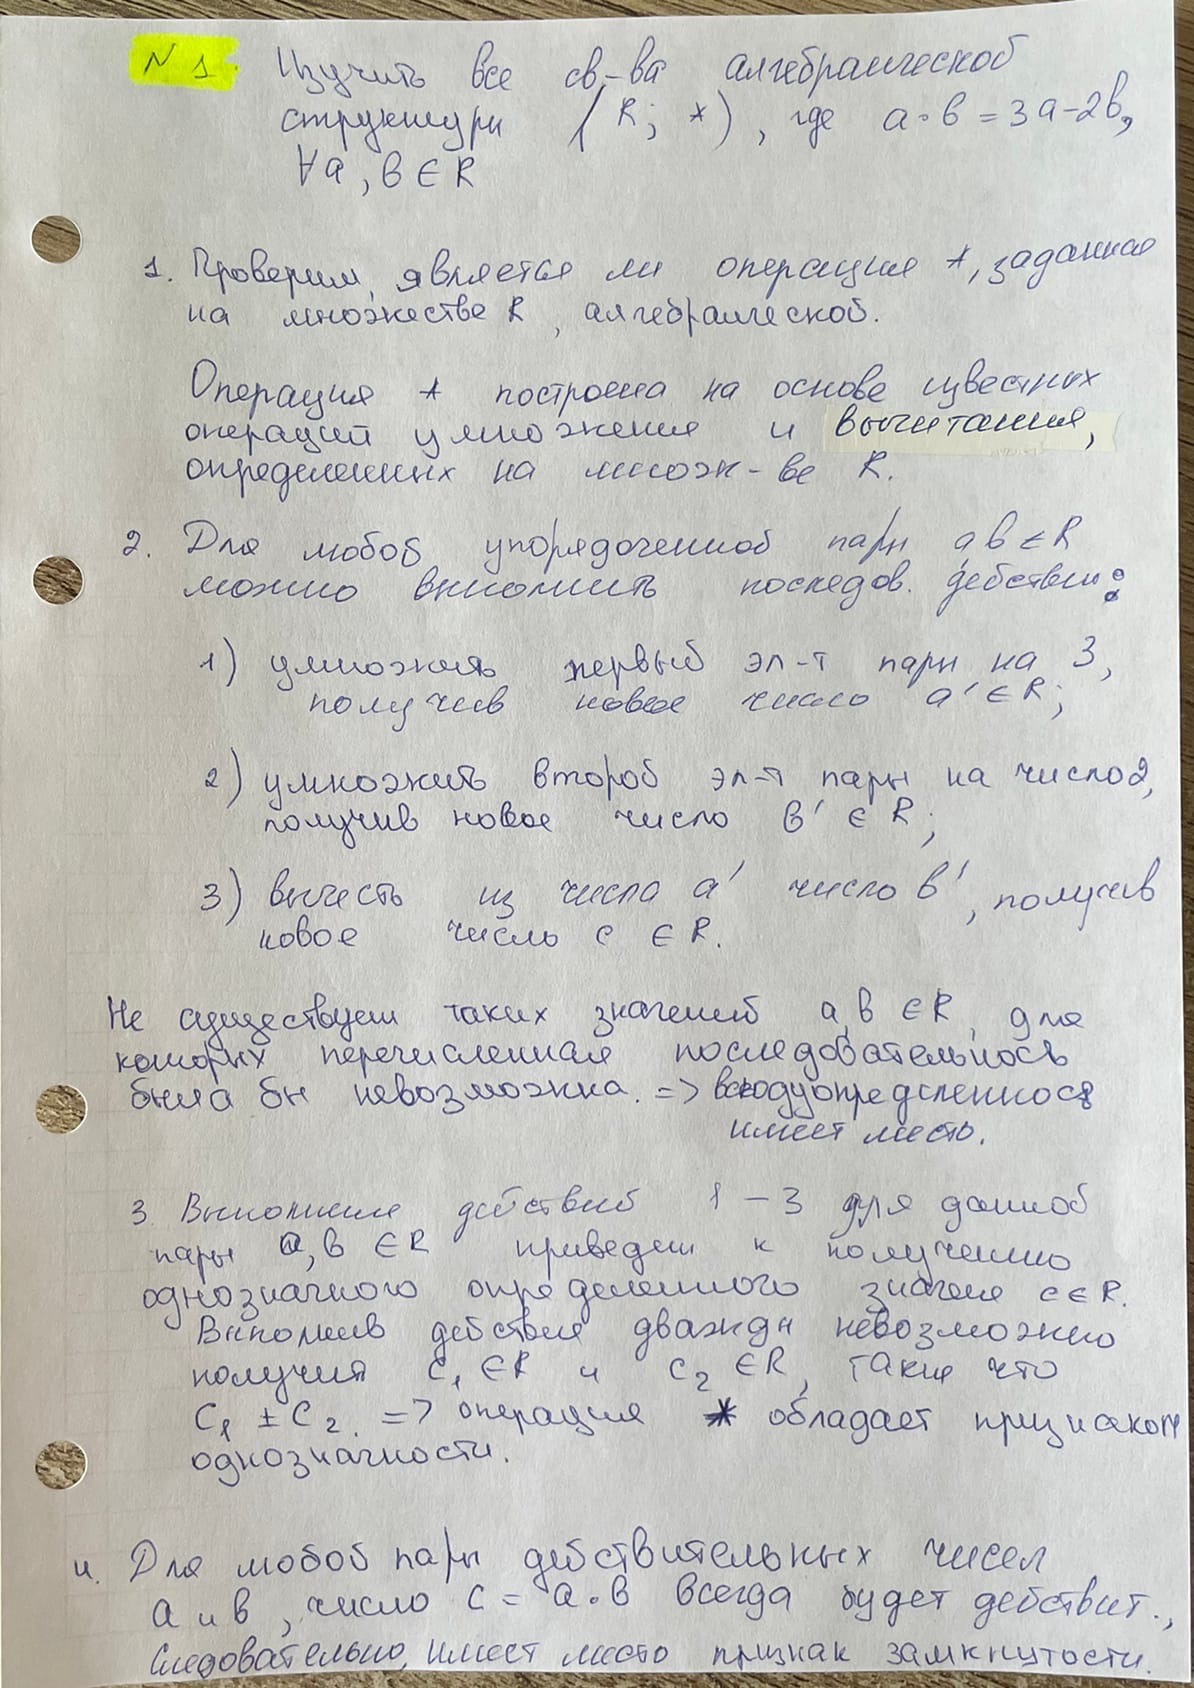 № 1. Изучить все св-ва алгебраической
структуры (R; *), где a∘b = 3a-2b,
∀a, b ∈ R
1. Проверим, является ли операция *, заданная
на множестве R, алгебраической.
Операция * построена на основе известных
операций умножения и вычитания,
определенных на множ-ве R.
2. Для любой упорядоченной пары a, b ∈ R
можно выполнить последов. действий:
1) умножить первый эл-т пары на 3,
получив новое число a' ∈ R;
2) умножить второй эл-т пары на число 2,
получив новое число b' ∈ R;
3) вычесть из числа a' число b', получив
новое число c ∈ R.
Не существует таких значений a, b ∈ R, для
которых перечисленная последовательнось
была бы невозможна. => всюдуопределенность
имеет место.
3. Выполнение действий 1-3 для данной
пары a, b ∈ R приведет к получению
однозначного определенного значения c ∈ R.
Выполнив действия дважды невозможно
получить c₁ ∈ R и c₂ ∈ R, такие что
c₁ ± c₂. => операция * обладает признаком
однозначности.
4. Для любой пары действительных чисел
a и b, число c = a∘b всегда будет действит.,
следовательно, имеет место признак замкнутости.